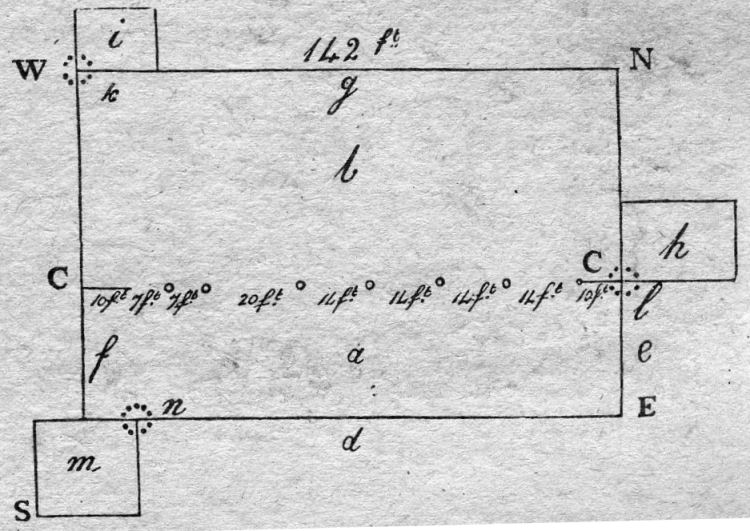 i
142 ft
W N
k g
b
h
C C
10ft 7ft 7ft 20ft 14ft 14ft 14ft 14ft 10ft
l
f a e
n E
d
m
S